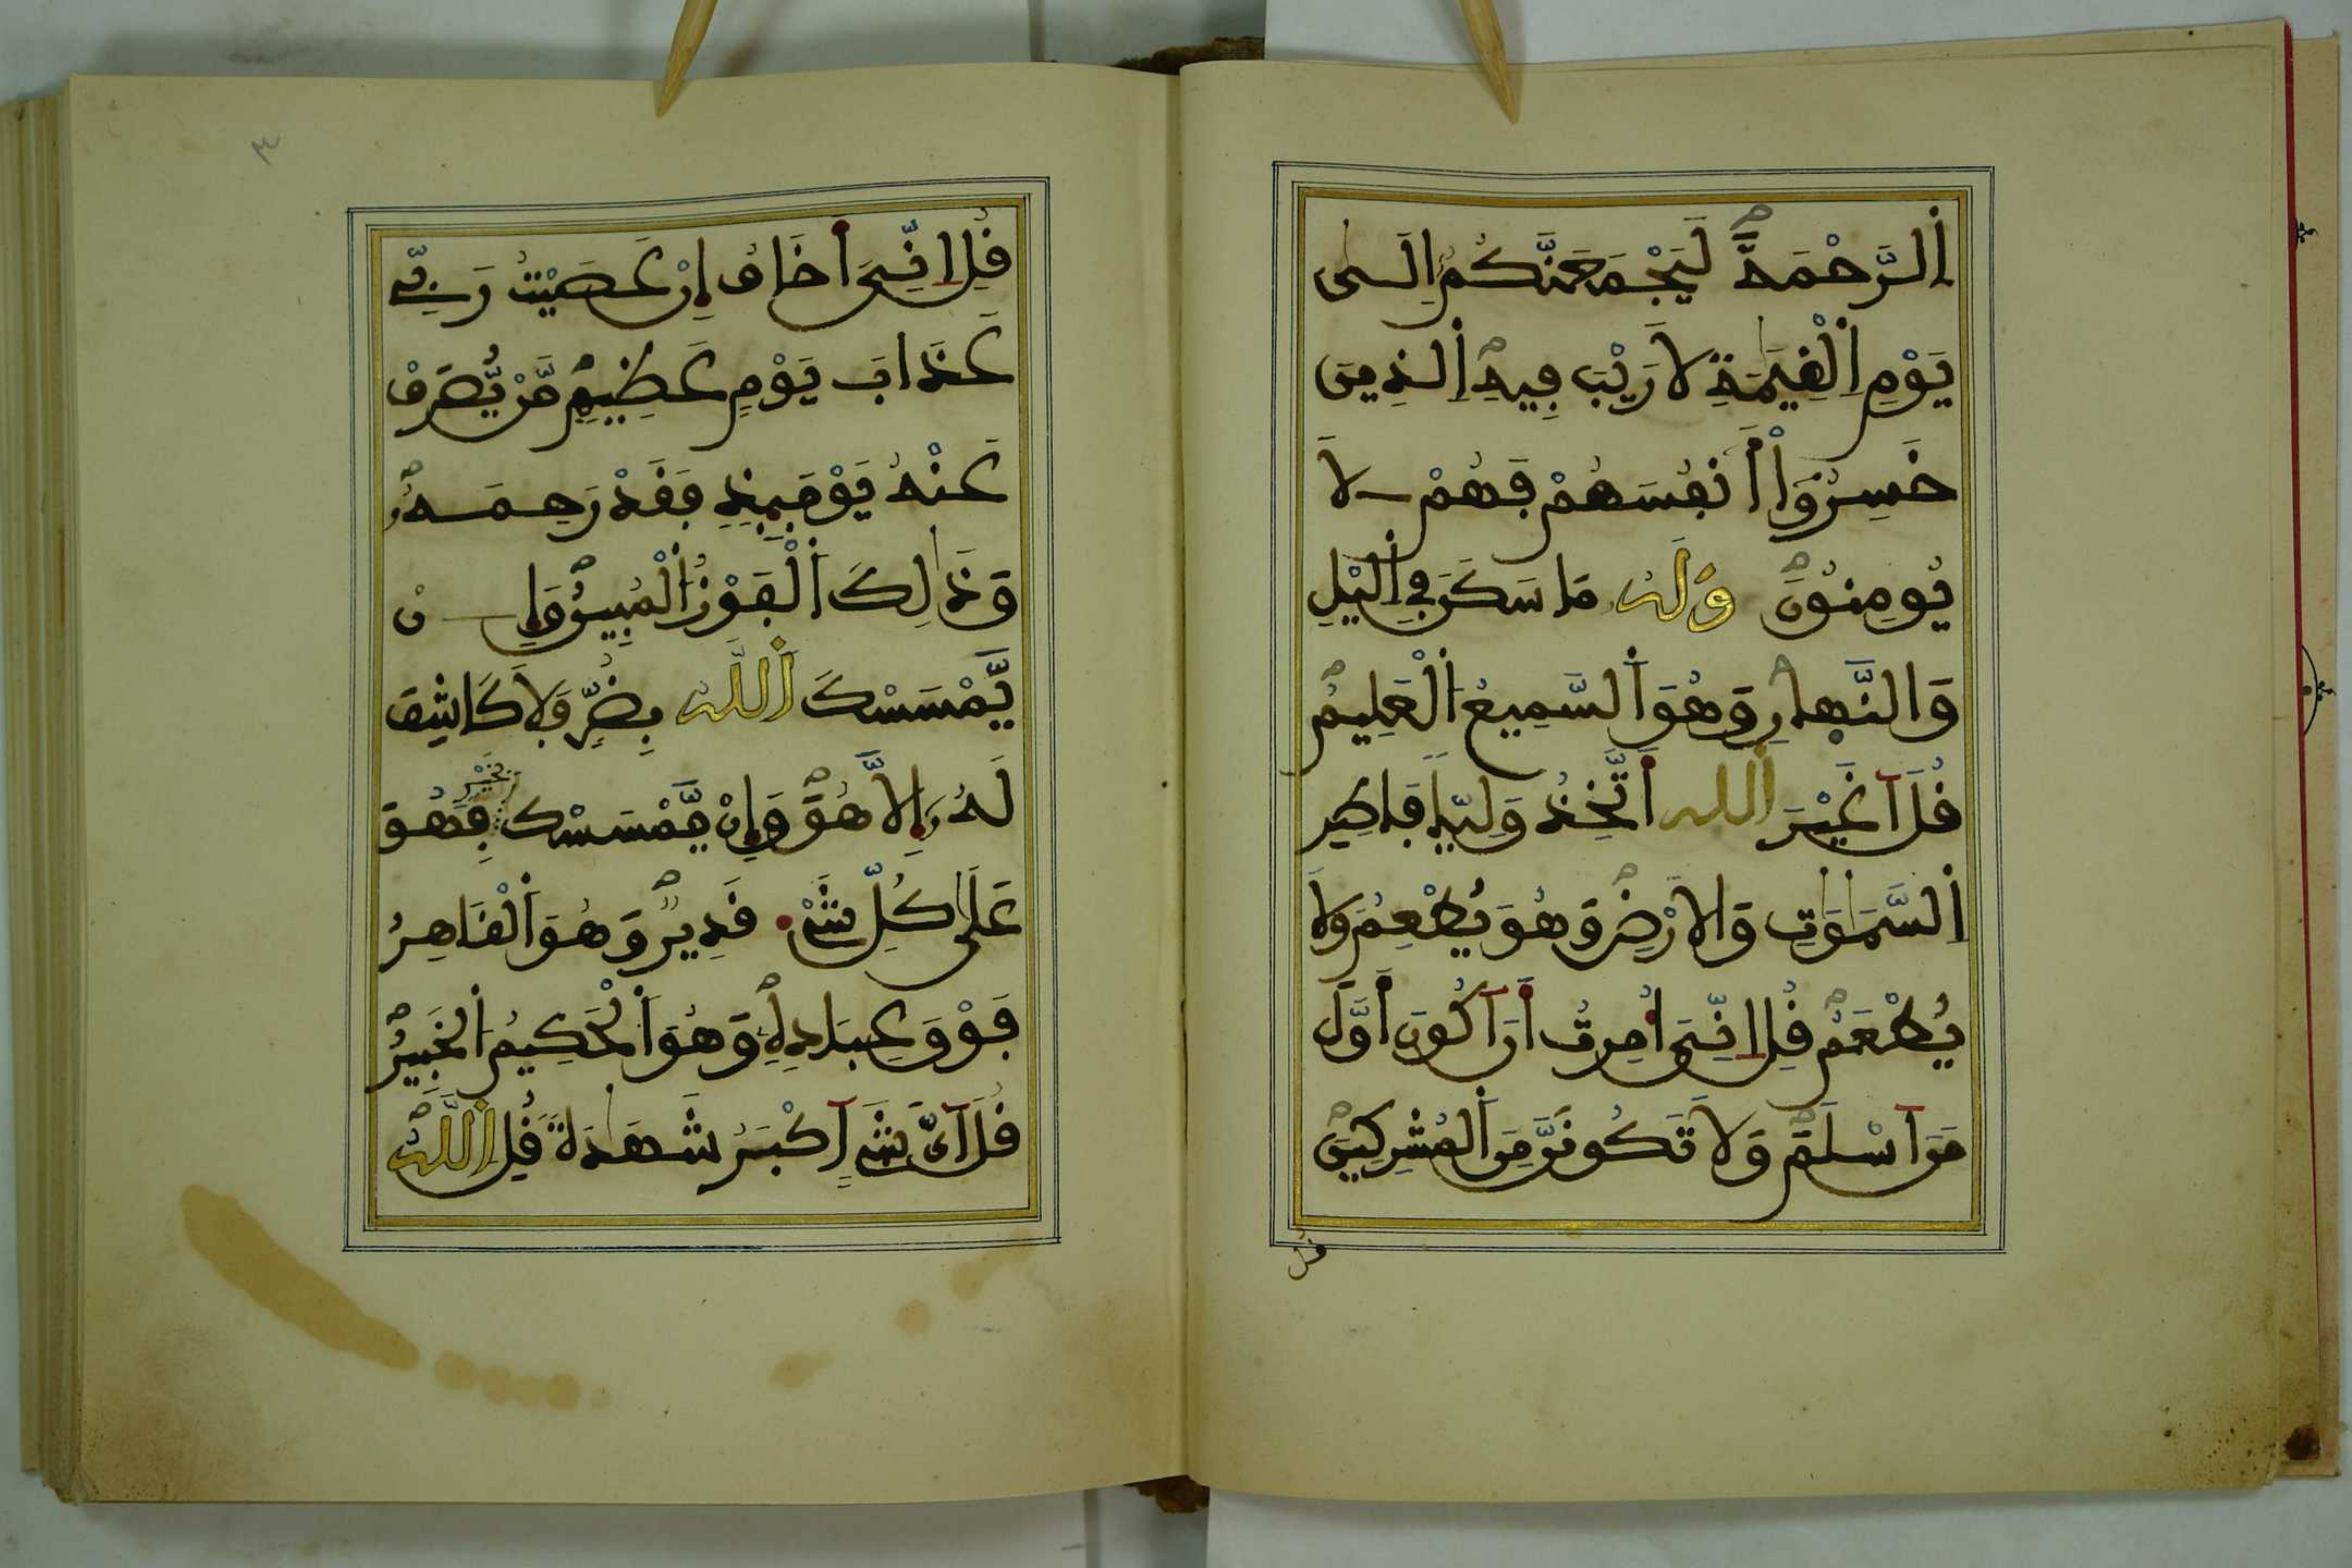 اَلرَّحْمَةَ لَيَجْمَعَنَّكُمُ إِلَىٰ
يَوْمِ اِ۬لْقِيَٰمَةِ لَا رَيْبَ فِيهِ اِ۬لذِينَ
خَسِرُوٓاْ أَنفُسَهُمْ فَهُمْ لَا
يُومِنُونَ وَلَهُۥ مَا سَكَنَ فِي اِ۬ليْلِ
وَالنَّهارِ وَهُوَ اَ۬لسَّمِيعُ اُ۬لْعَلِيمُ
قُلَ اَغَيْرَ اَ۬للهِ أَتَّخِذُ وَلِيّاٗ فَاطِرِ
اِ۬لسَّمَٰوَٰتِ وَالَارْضِ وَهُوَ يُطْعِمُ وَلَا
يُطْعَمُ قُلِ اِنِّيَ أُمِرْتُ أَنَ اَكُونَ أَوَّلَ
مَنَ اَسْلَمَ وَلَا تَكُونَنَّ مِنَ اَ۬لْمُشْرِكِينَ
قل
٣
قُلِ اِنِّيَ أَخَافُ إِنْ عَصَيْتُ رَبِّے
عَذَابَ يَوْمٍ عَظِيمٖ مَّنْ يُّصْرَفْ
عَنْهُ يَوْمَئِذٖ فَقَدْ رَحِمَهُۥ
وَذَٰلِكَ اَ۬لْفَوْزُ اُ۬لْمُبِينُ وَإِنْ
يَّمْسَسْكَ اَ۬للَّهُ بِضُرّٖ فَلَا كَاشِفَ
لَهُۥٓ إِلَّا هُوَ وَإِنْ يَّمْسَسْكَ بِخَيْرٖ فَهُوَ
عَلَىٰ كُلِّ شَےْءٖ قَدِيرٞ وَهُوَ اَ۬لْقَاهِرُ
فَوْقَ عِبَادِهِۦ وَهُوَ اَ۬لْحَكِيمُ اُ۬لْخَبِيرُ
قُلَ اَيُّ شَےْءٍ اَكْبَرُ شَهَٰدَةٗ قُلِ اِ۬للَّهُ